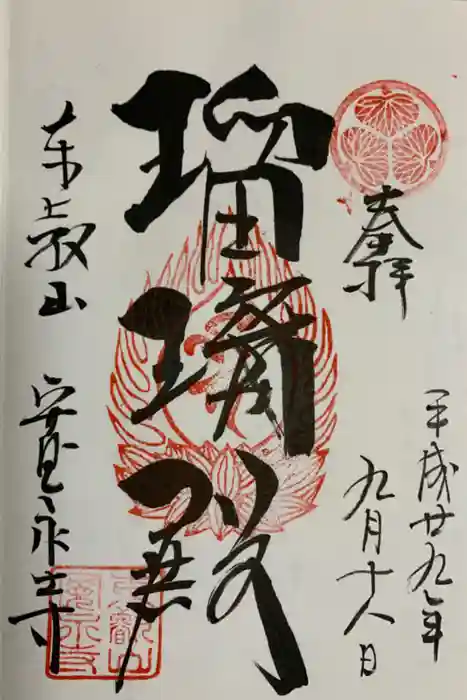 奉拝
平成廿九年
九月十八日
瑠璃殿
東叡山 寛永寺
東叡山
寛永寺